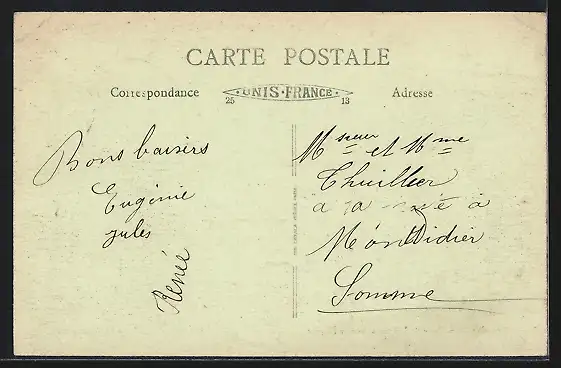 CARTE POSTALE
Correspondance
UNIS-FRANCE
25
13
Adresse
Bons baisers
Eugénie
Jules
Renée
Msieur et Mme
Thuillier
à la à
Montdidier
Somme